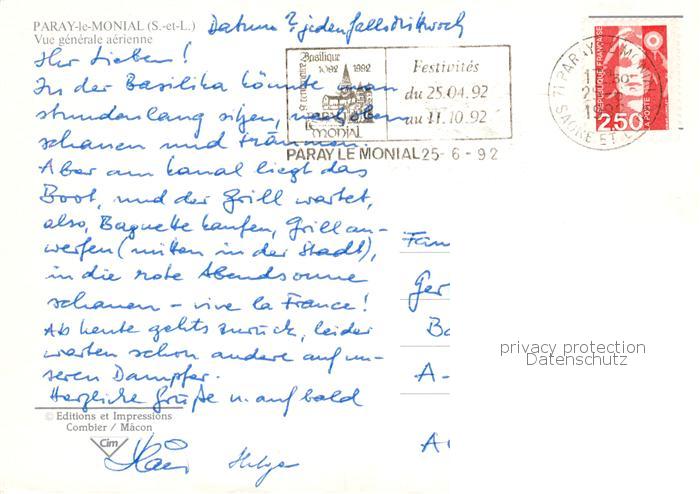 PARAY-le-MONIAL (S.-et-L.)
Vue générale aérienne
Datum ? jedenfalls Mittwoch
Ihr Lieben!
In der Basilika könnte man
stundenlang sitzen, nach oben
schauen und träumen.
Aber am Kanal liegt das
Boot, und der Grill wartet,
also, Baguette kaufen, Grill an-
werfen (mitten in der Stadt),
in die rote Abendsonne
schauen - vive la France!
Ab heute gehts zurück, leider
warten schon andere auf un-
seren Dampfer.
Herzliche Grüße u. auf bald
Helga
© Editions et Impressions
Combier / Mâcon
Cim
9e centenaire
Basilique
1092 1992
monial
Festivités
du 25.04.92
au 11.10.92
PARAY LE MONIAL 25-6-92
71 PARAY LE MONIAL
SAONE ET L
RÉPUBLIQUE FRANÇAISE
2,50
LA POSTE
Fam
Ger
Ba
A-
privacy protection
Datenschutz